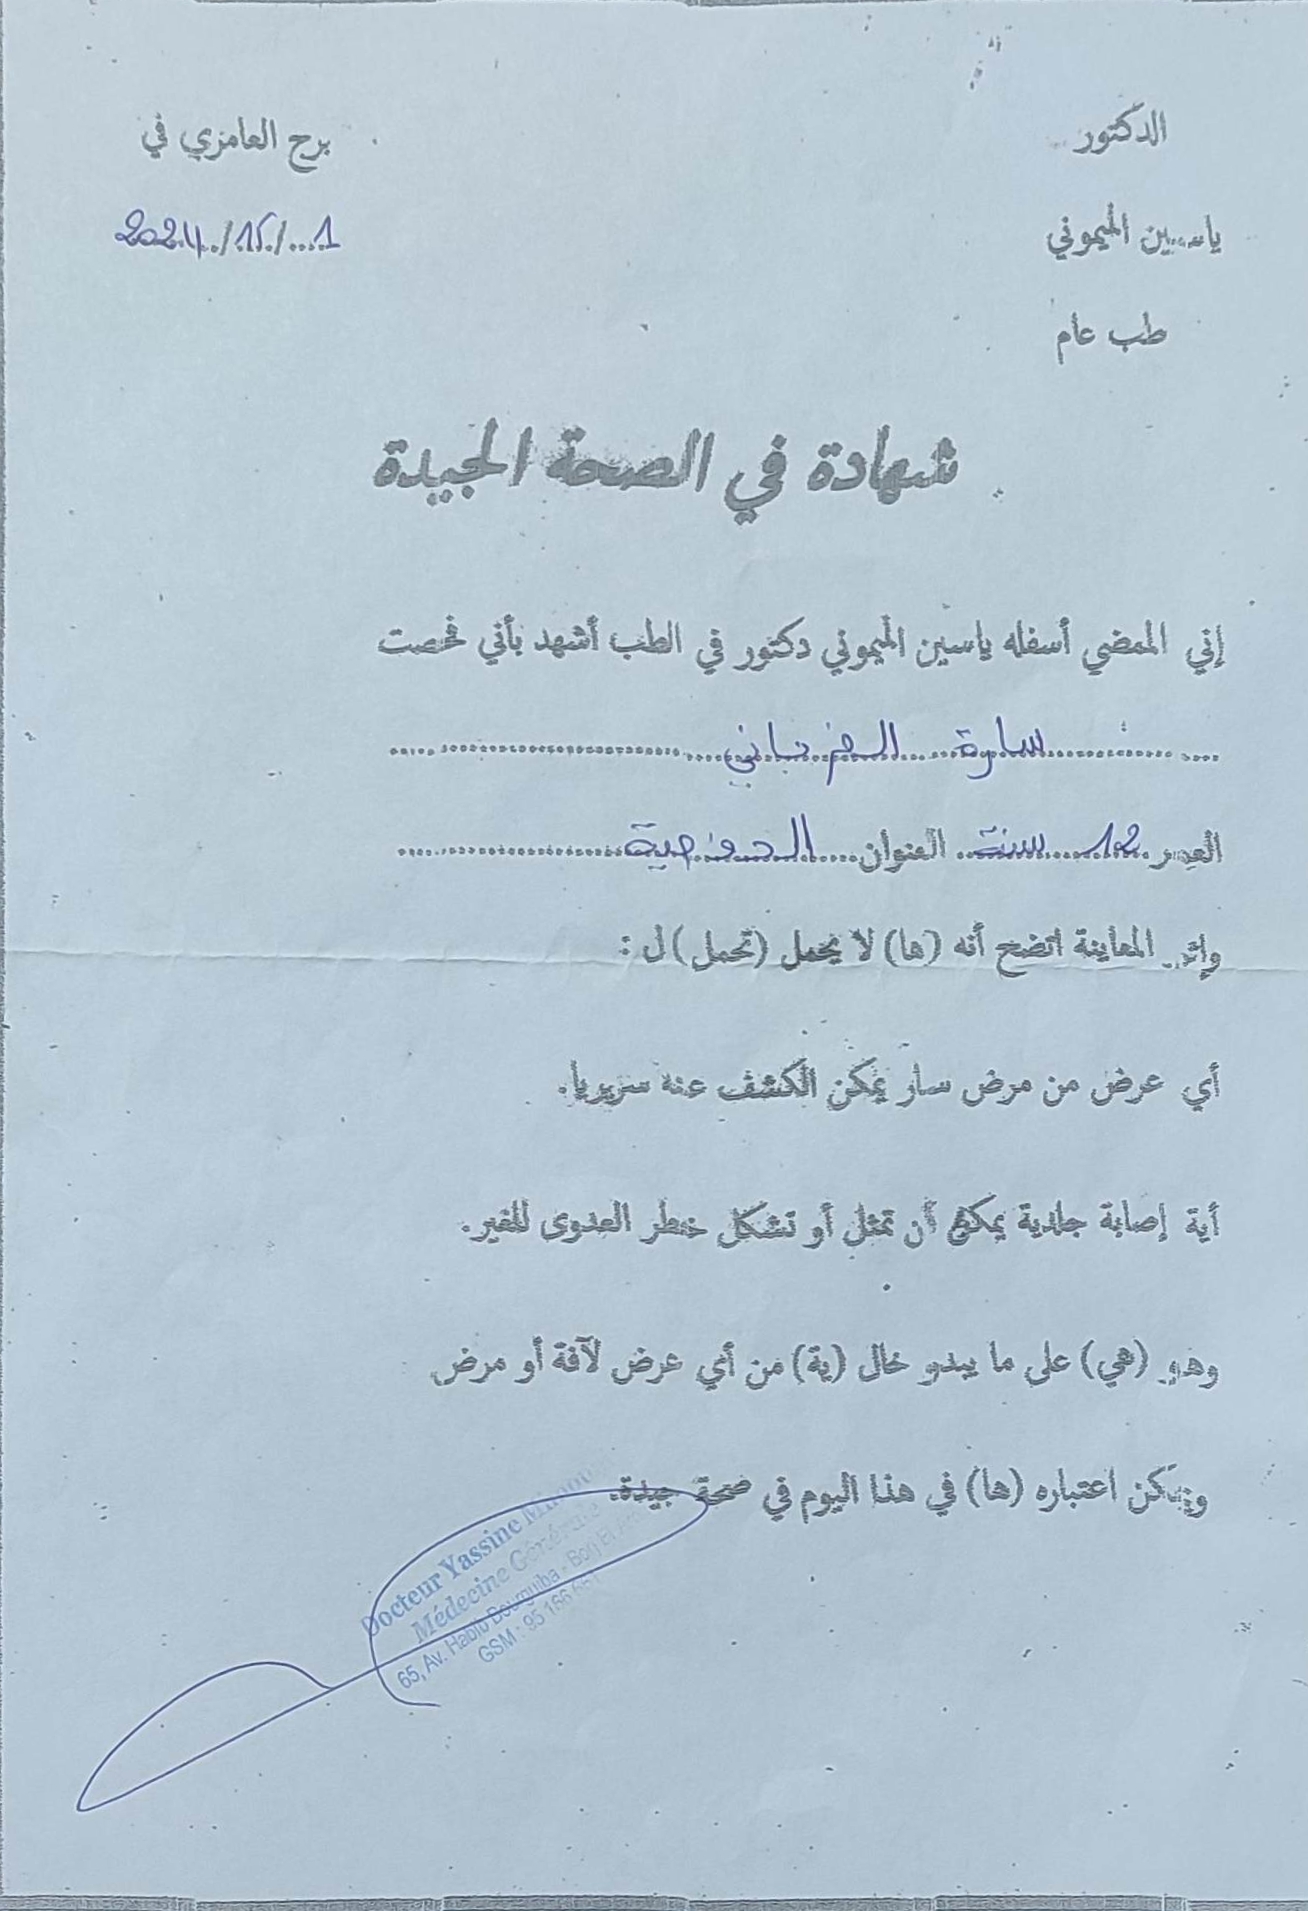 الدكتور
برج العامري في
ياسين الميموني
2024/12/1
طب عام
شهادة في الصحة الجيدة
إني الممضي أسفله ياسين الميموني دكتور في الطب أشهد بأني فحصت
سارة
العمر 12 سنة العنوان
وإثر المعاينة اتضح أنه (ها) لا يحمل (تحمل) ل :
أي عرض من مرض سار يمكن الكشف عنه سريريا.
أية إصابة جلدية يمكن أن تمثل أو تشكل خطر العدوى للغير.
وهو (هي) على ما يبدو خال (ية) من أي عرض لآفة أو مرض
ويمكن اعتباره (ها) في هذا اليوم في صحة جيدة.
Docteur Yassine
Médecine Générale
65, Av. Habib Bourguiba - Borj El
GSM : 95 166